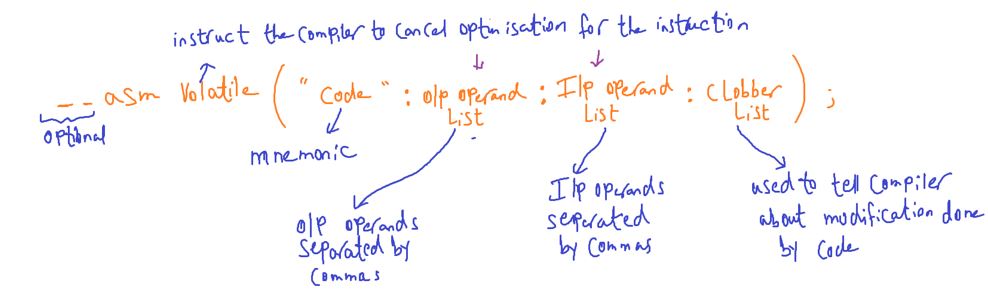 instruct the compiler to cancel optimisation for the instruction
__ asm Volatile ( " Code " : o/p operand List : I/p operand List : Clobber List ) ;
optional
mnemonic
o/p operands
separated by
Commas
I/p operands
seperated
by Commas
used to tell Compiler
about modification done
by Code